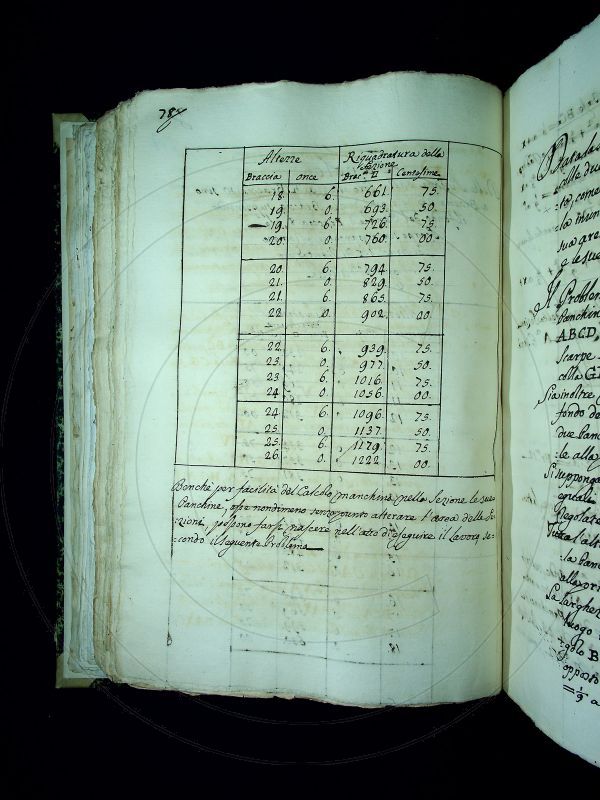 78
Altezze Riquadratura della Sezione
Braccia once Brac.ª Centesime
18 6. 661. 75.
19. 0. 693. 50.
19. 6. 726. 75
20. 0. 760. 00
20. 6. 794. 75.
21. 0. 829. 50.
21. 6. 865. 75.
22 0. 902. 00.
22. 6. 939. 75.
23. 0. 977. 50.
23 6. 1016. 75.
24 0. 1056. 00.
24 6. 1096. 75.
25. 0. 1137. 50.
25. 6. 1179. 75.
26. 0. 1222. 00.
Benchè per facilità del Calcolo, manchino nella Sezione le sue
Panchine, esse nondimeno senza punto alterare l'area delle Se-
zioni, possono farsi nascere nell'atto di eseguire il lavoro, se-
condo il seguente Problema
colla due
Il Problem
Panchin
ABCD,
Scarpe
colla G
Sia inoltre
fondo de
due Panc
le alla
Si suppong
eguale
Regolat
Tutta l'alt
la Panc
alla
La larghez
luogo
golo B
opposto
=1/9 a